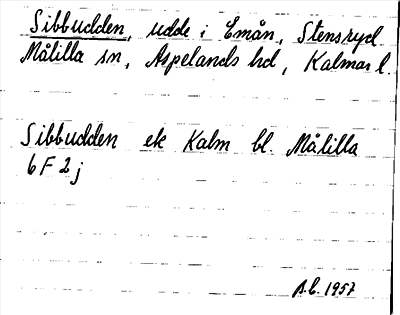 Sibbudden, udde i Emån, Stensryd
Målilla sn, Aspelands hd, Kalmar l.
Sibbudden ek Kalm bl. Målilla
6 F 2 j
A.C. 1957